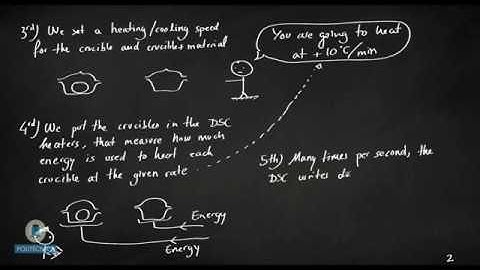 3rd) We set a heating/cooling speed
for the crucible and crucible+material
You are going to heat
at +10°C/min
4rd) We put the crucibles in the DSC
heaters, that measure how much
energy is used to heat each
crucible at the given rate
5th) Many times per second, the
DSC writes do
Energy
Energy
POLITÈCNICA
2